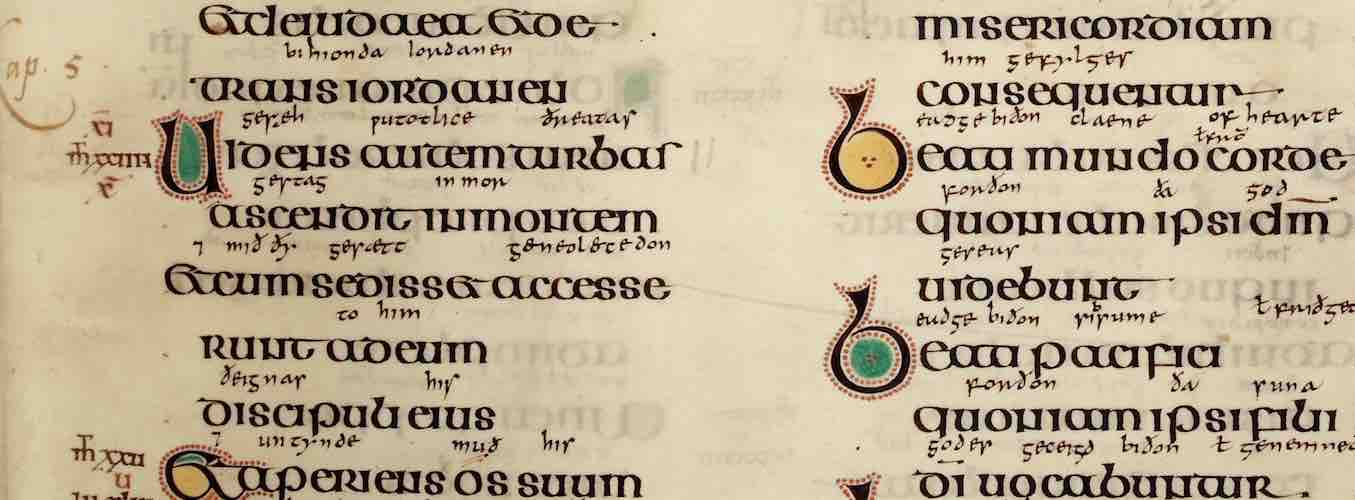 Et de iudaea Et de
bihionda iordanen
trans iordanen
ap. 5
geseh ðreatas
Uidens autem turbas
gestag in mor
ascendit in montem
⁊ mið ðy gesætt geneolecedon
Et cum sedisset accesse
to him
runt ad eum
ðeignas his
discipuli eius
⁊ untynde muð his
Et aperiens os suum
misericordiam
him gefylges
consequentur
eadge biðon claene of hearte
Beati mundo corde
forðon ða god
quoniam ipsi dm̄
geseas
uidebunt
eadge biðon sibsume
Beati pacifici
forðon ða suna
quoniam ipsi filii
godes geceigd biðon ł genemned
di uocabuntur